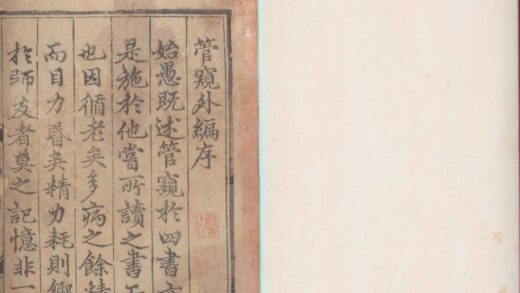 管窺外編序
始愚既述管窺於四書
是施於他嘗所讀之書
也因循老矣多病之餘精
而目力昬矣精力耗則
於師友者莫之記憶非一